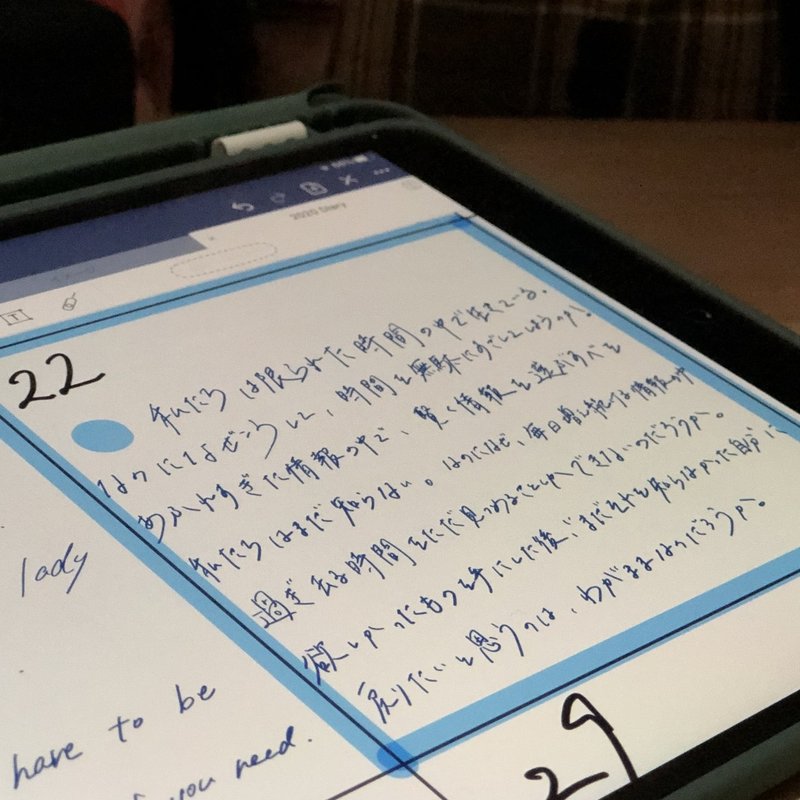 2020 Diary
22
私たちは限られた時間の中で生きている。
なのになぜこうして、時間を無駄にすごしてしまうのか。
あふれすぎた情報の中で、賢く情報を選ぶすべを
私たちはまだ知らない。なのになぜ、毎日増え続ける情報の中
過ぎ去る時間をただ見つめることしかできないのだろうか。
欲しかったものを手にした後、まだそれを知らなかった自分に
戻りたいと思うのは、わがままなのだろうか。
lady
have to be
you need.
29